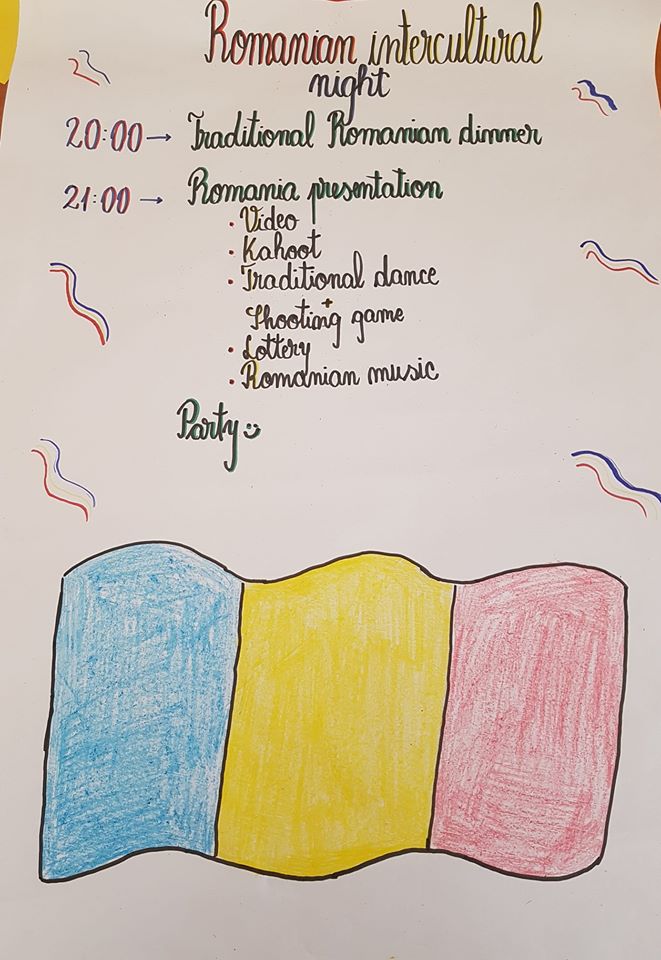 Romanian intercultural
night
20:00 → Traditional Romanian dinner
21:00 → Romania presentation
• Video
• Kahoot
• Traditional dance
+
Shooting game
• Lottery
• Romanian music
Party :)